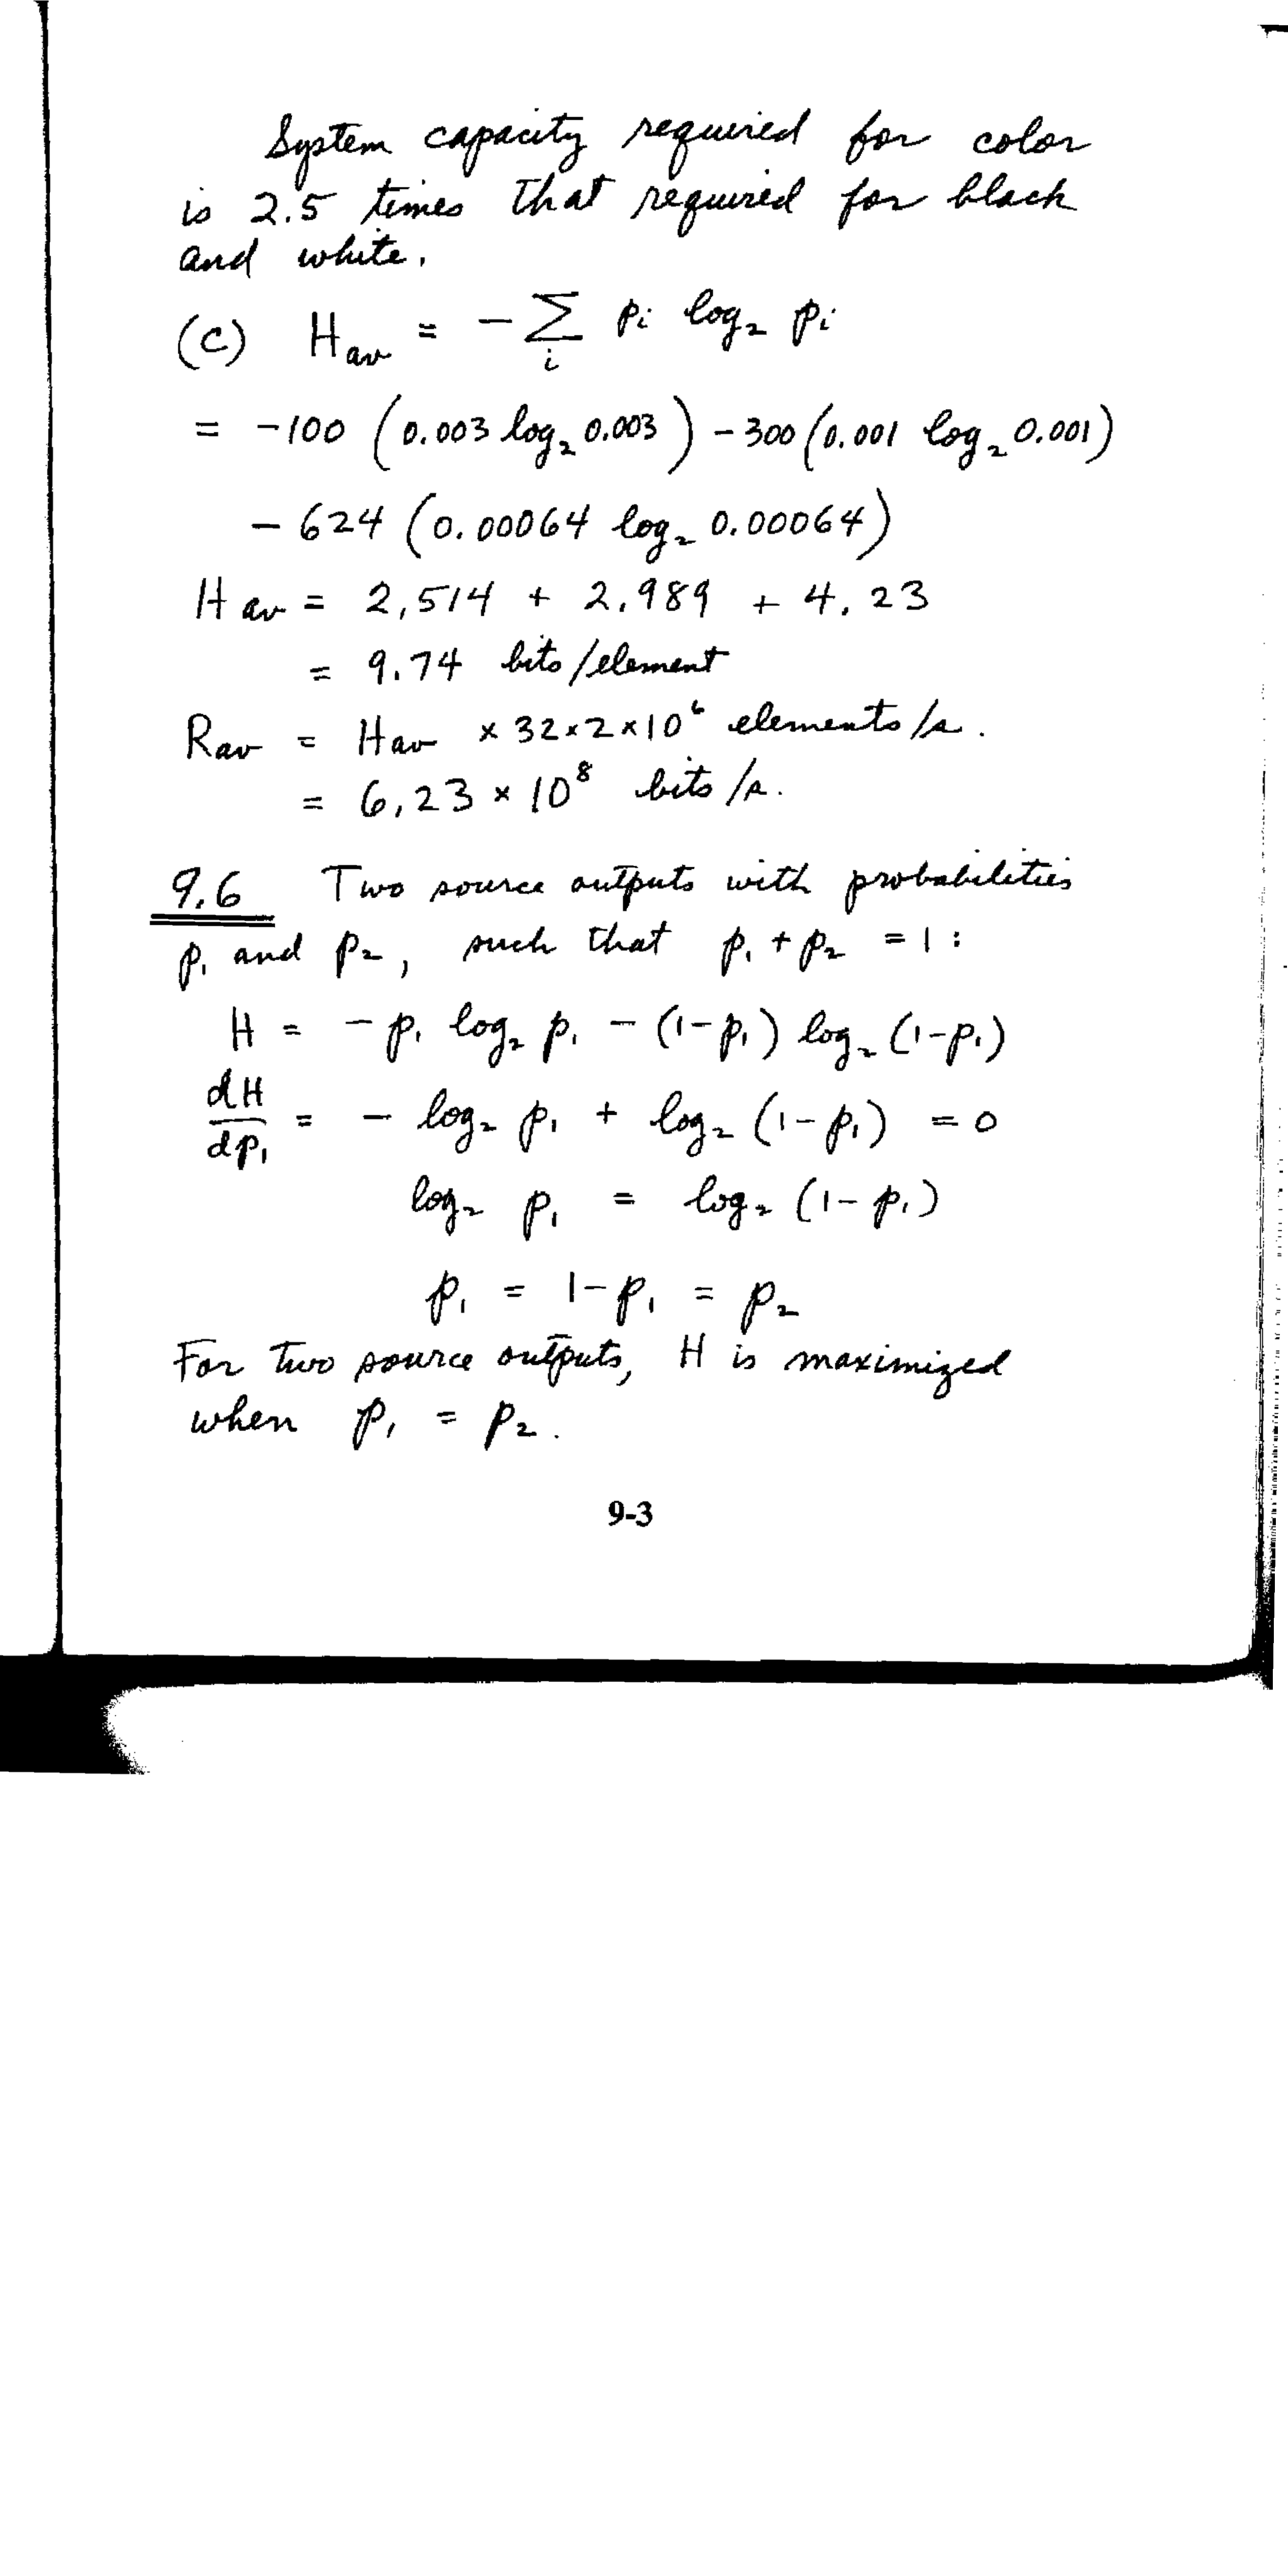 System capacity required for color
is 2.5 times that required for black
and white.
(c) H_av = -∑_i p_i log₂ p_i
= -100 (0.003 log₂ 0.003) - 300 (0.001 log₂ 0.001)
- 624 (0.00064 log₂ 0.00064)
H_av = 2,514 + 2.989 + 4.23
= 9.74 bits/element
R_av = H_av × 32×2×10⁶ elements/s.
= 6,23 × 10⁸ bits/s.
9.6 Two source outputs with probabilities
p₁ and p₂, such that p₁ + p₂ = 1 :
H = - p₁ log₂ p₁ - (1-p₁) log₂ (1-p₁)
dH/dp₁ = - log₂ p₁ + log₂ (1-p₁) = 0
log₂ p₁ = log₂ (1-p₁)
p₁ = 1-p₁ = p₂
For two source outputs, H is maximized
when p₁ = p₂.
9-3